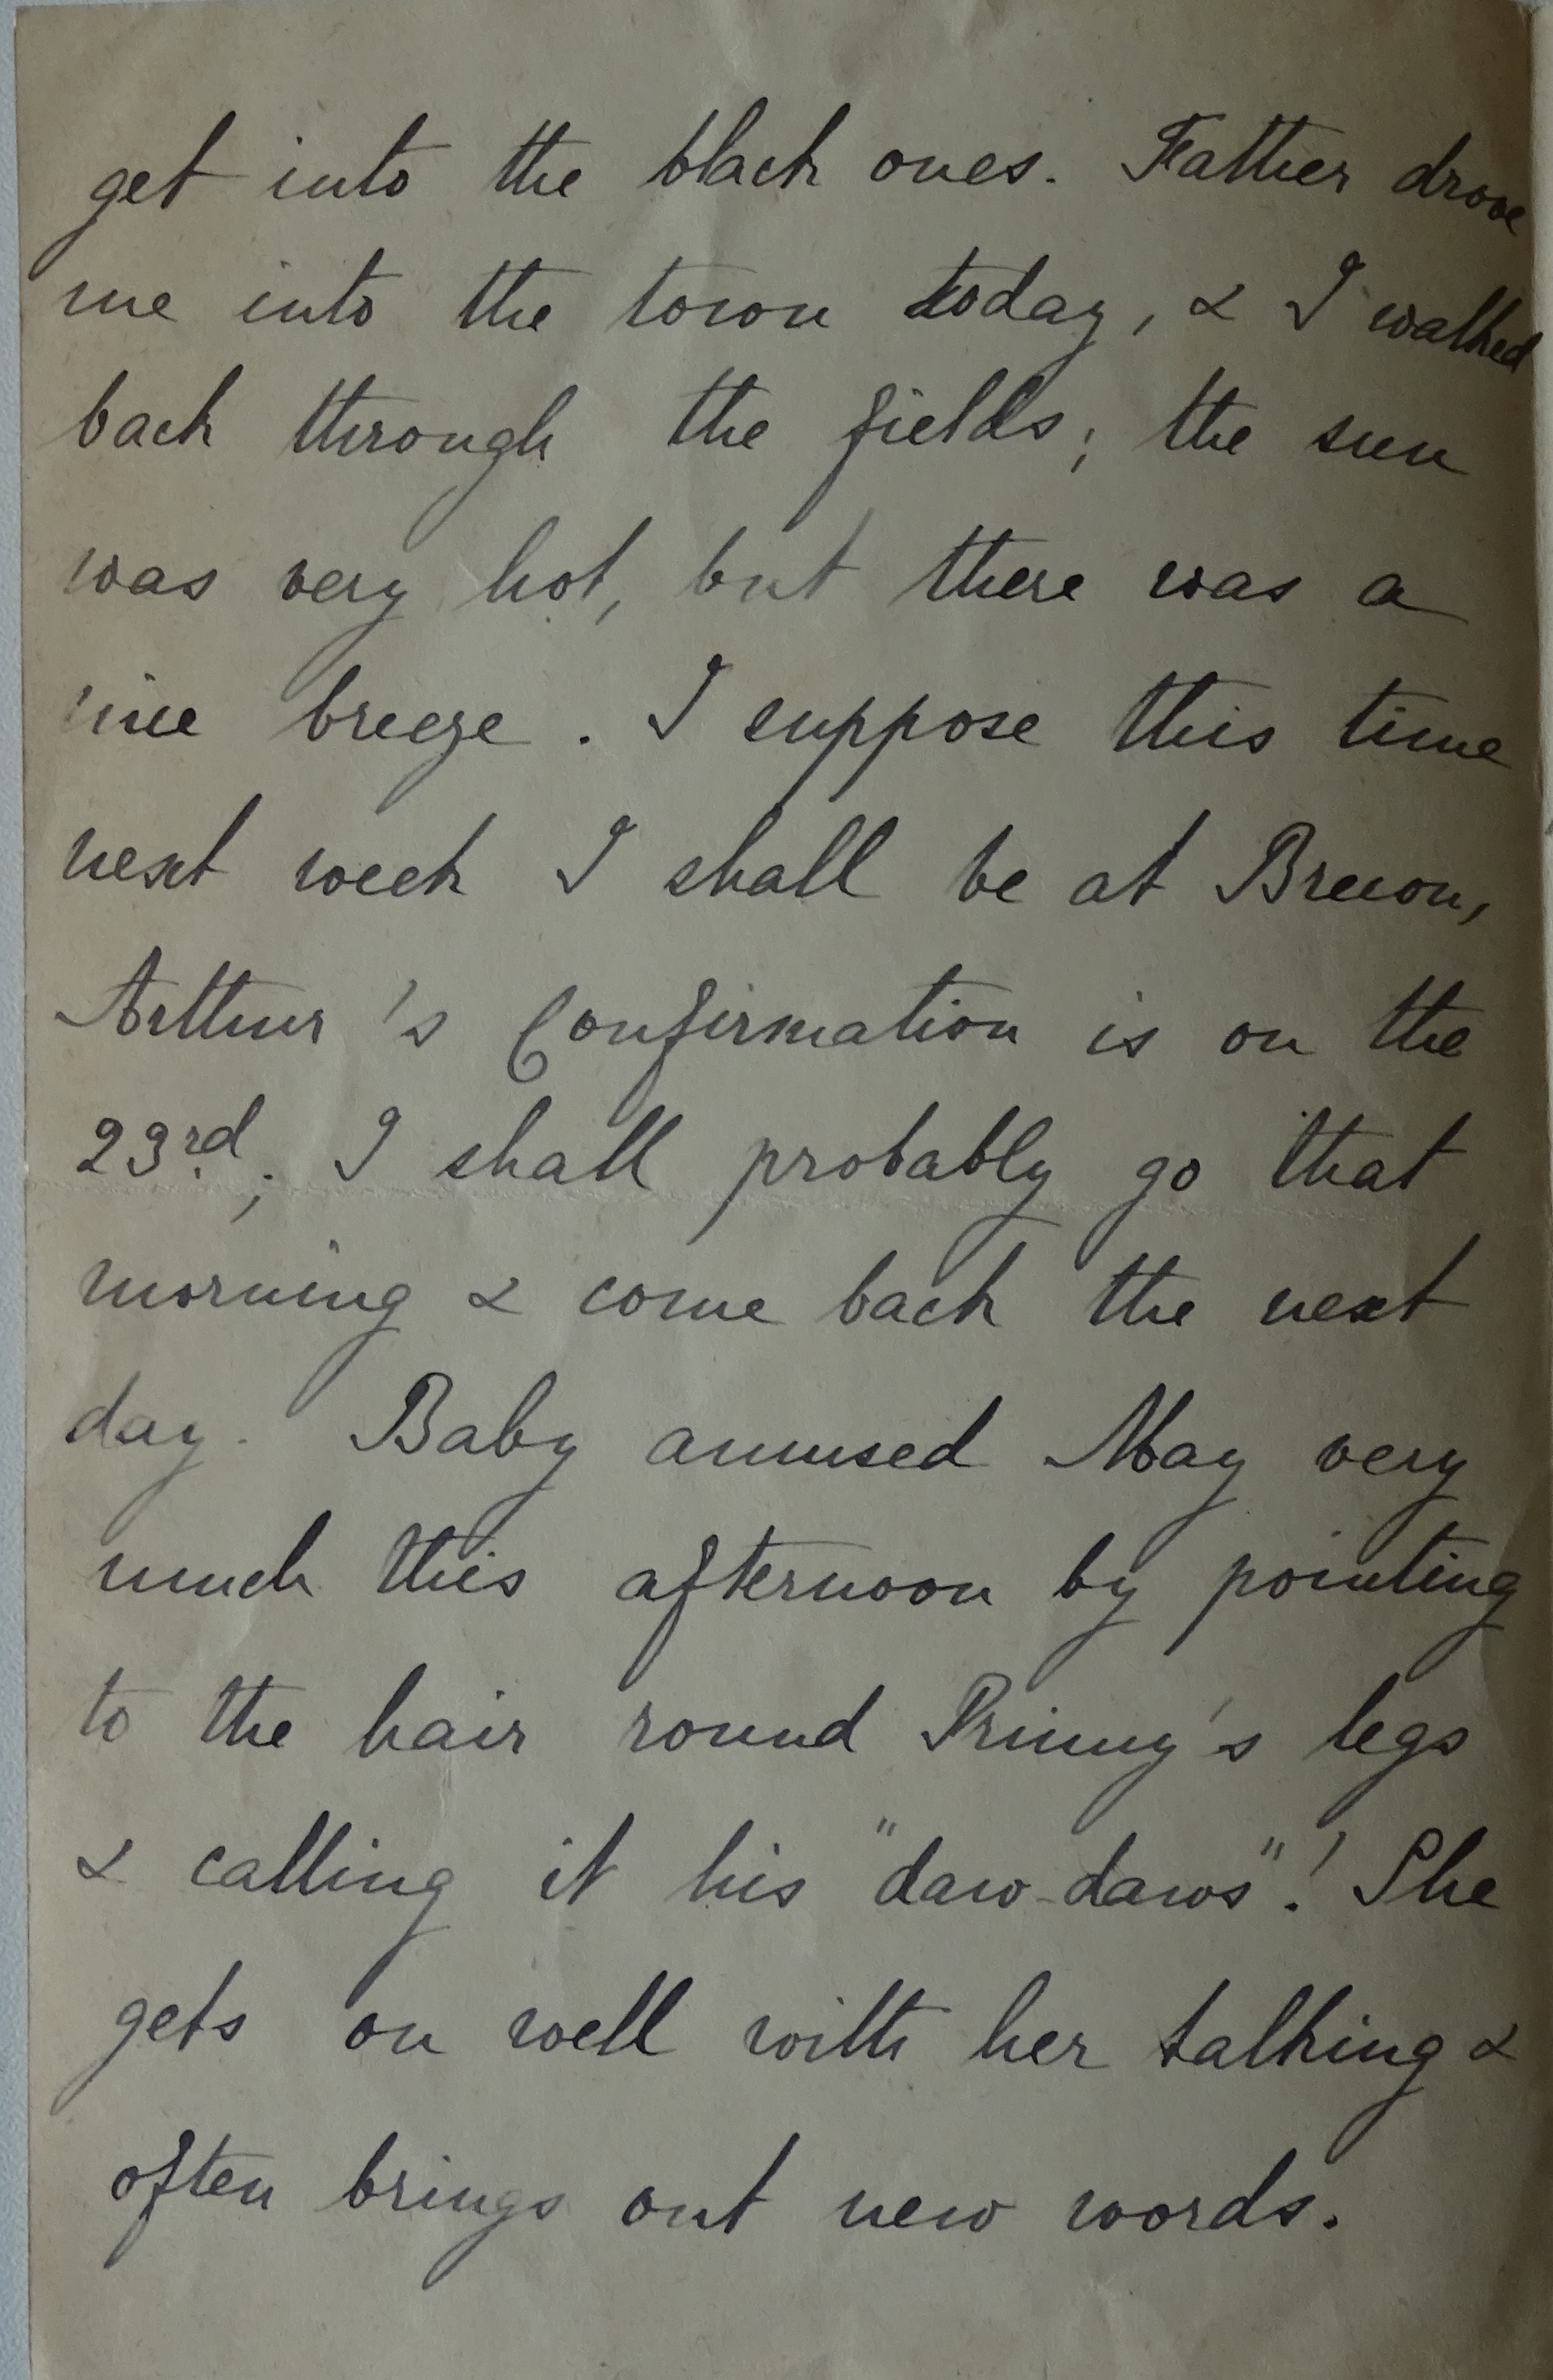 get into the black ones. Father drove
me into the town today, & I walked
back through the fields; the sun
was very hot, but there was a
nice breeze. I suppose this time
next week I shall be at Brecon,
Arthur's Confirmation is on the
23rd; I shall probably go that
morning & come back the next
day. Baby amused May very
much this afternoon by pointing
to the hair round Prinny's legs
& calling it his "daw-daws"! She
gets on well with her talking &
often brings out new words.